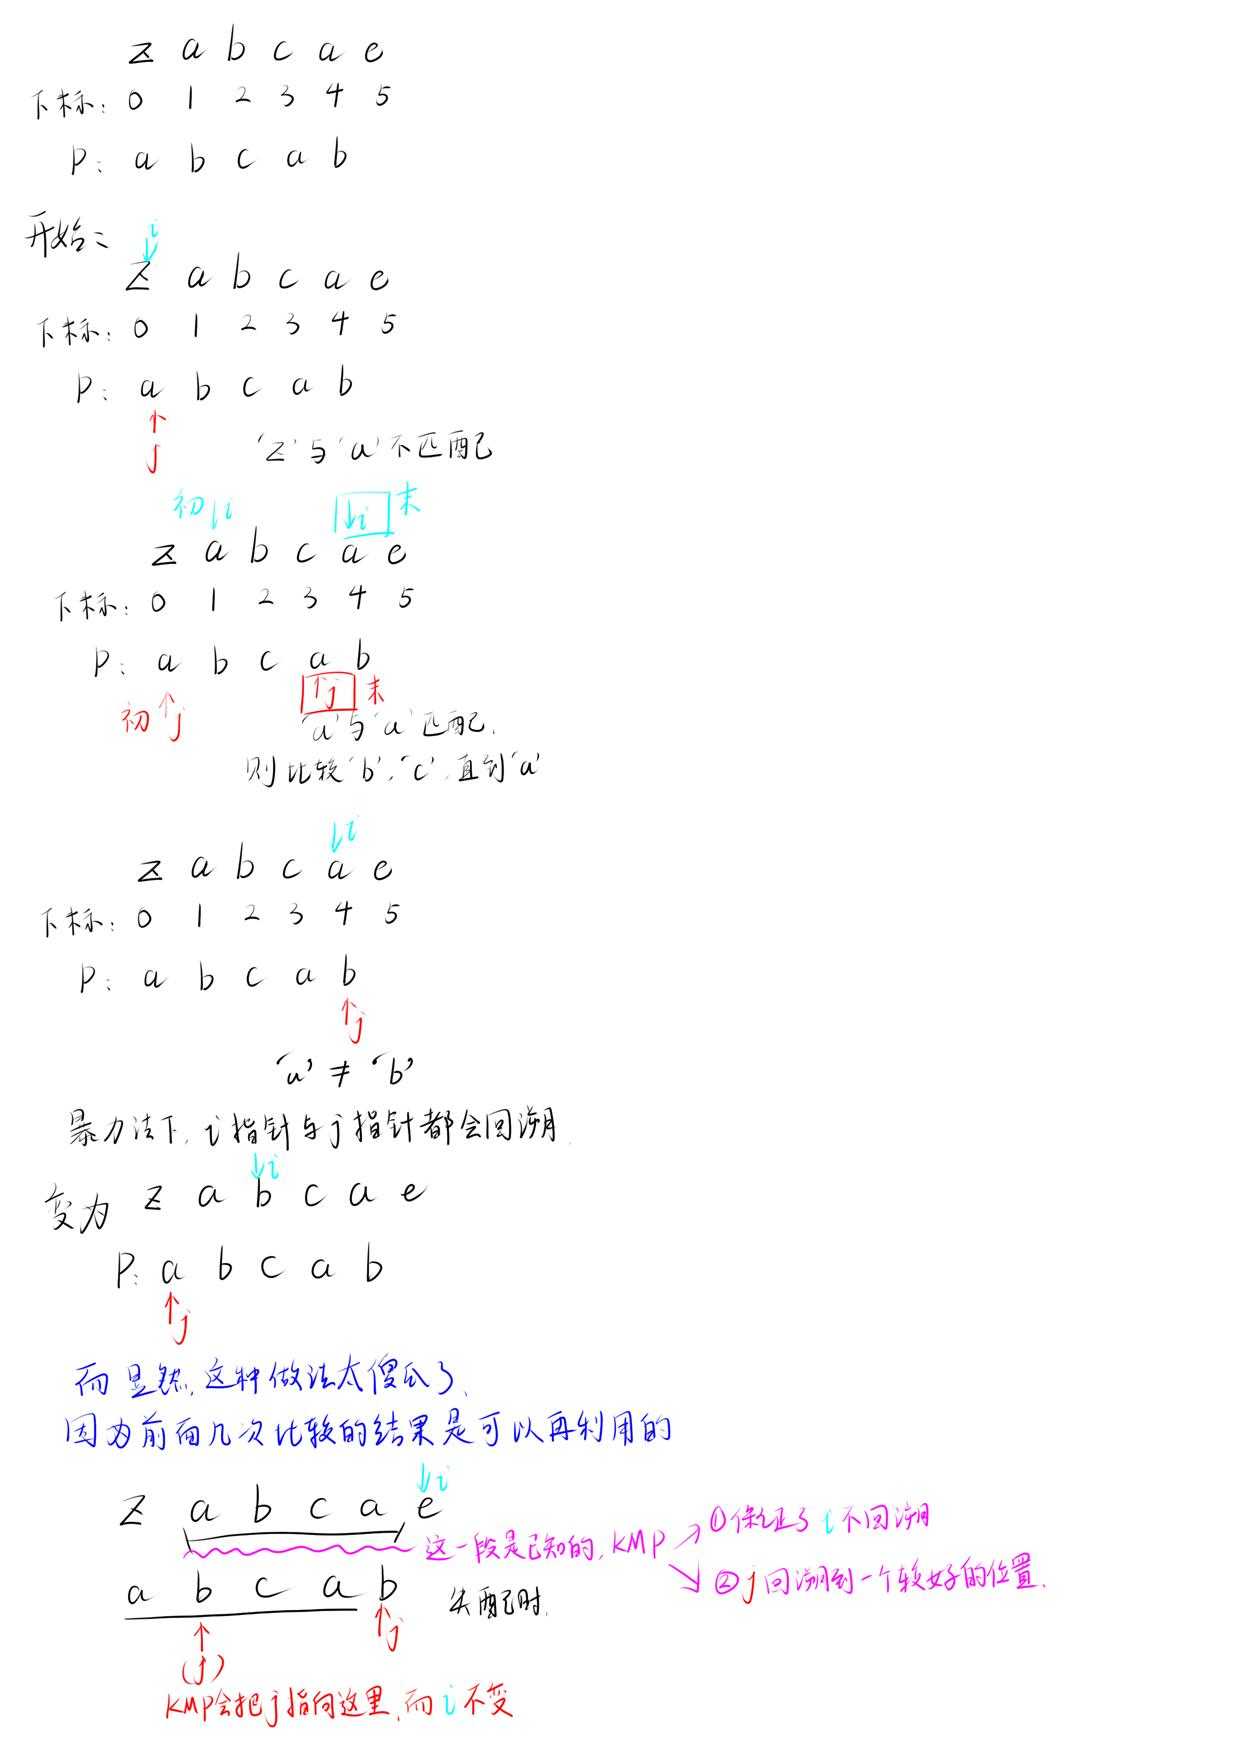 z a b c a e
下标: 0 1 2 3 4 5
P: a b c a b
开始:
i
z a b c a e
下标: 0 1 2 3 4 5
P: a b c a b
j
'z'与'a'不匹配
初 ↓i ↓i 末
z a b c a e
下标: 0 1 2 3 4 5
P: a b c a b
初 ↑j ↑j 末
'a'与'a'匹配.
则比较'b','c',直到'a'
↓i
z a b c a e
下标: 0 1 2 3 4 5
P: a b c a b
↑j
'a' ≠ 'b'
暴力法下, i指针与j指针都会回溯.
↓i
变为 z a b c a e
P: a b c a b
↑j
而显然,这种做法太傻瓜了,
因为前面几次比较的结果是可以再利用的
↓i
z a b c a e
这一段是已知的, KMP
①保证了i不回溯
②j回溯到一个较好的位置.
a b c a b 失配时.
↑j
↑
(j)
KMP会把j指向这里,而i不变